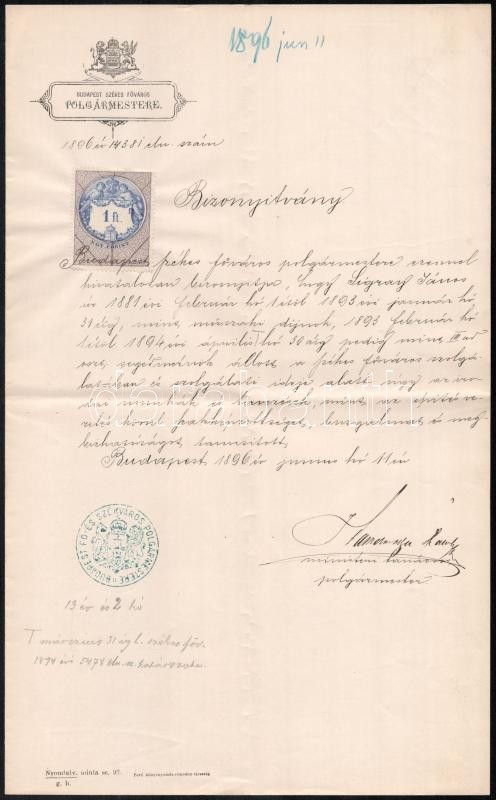 1896 jun 11
BUDAPEST SZÉKES FŐVÁROS
POLGÁRMESTERE.
1896 év 14381 eln. szám
Bizonyitvány
1 ft.
EGY FORINT
Budapest székes főváros polgármestere ezennel
hivatalosan bizonyitja, hogy János
úr 1881 évi február hó 1étől 1893 évi január hó
31éig, mint műszaki dijnok, 1893 február hó
1étől 1894 évi április hó 30áig pedig mint III ad
oszt. segédmérnök állott a székes főváros szolgá-
latában és szolgálata ideje alatt úgy az iro-
dai mint az épités ve-
zetés körül szakképzettséget, szorgalmat és meg-
bizhatóságot tanusitott.
Budapest 1896 év junius hó 11 én
polgármester
BUDAPEST FŐ- ÉS SZÉKVÁROS POLGÁRMESTERE
13 év és 2 hó
márczius 31 ig l. székes főv.
1894 évi 5478 eln. sz. határozata.
Nyomtatv. minta sz. 97.
g. b.